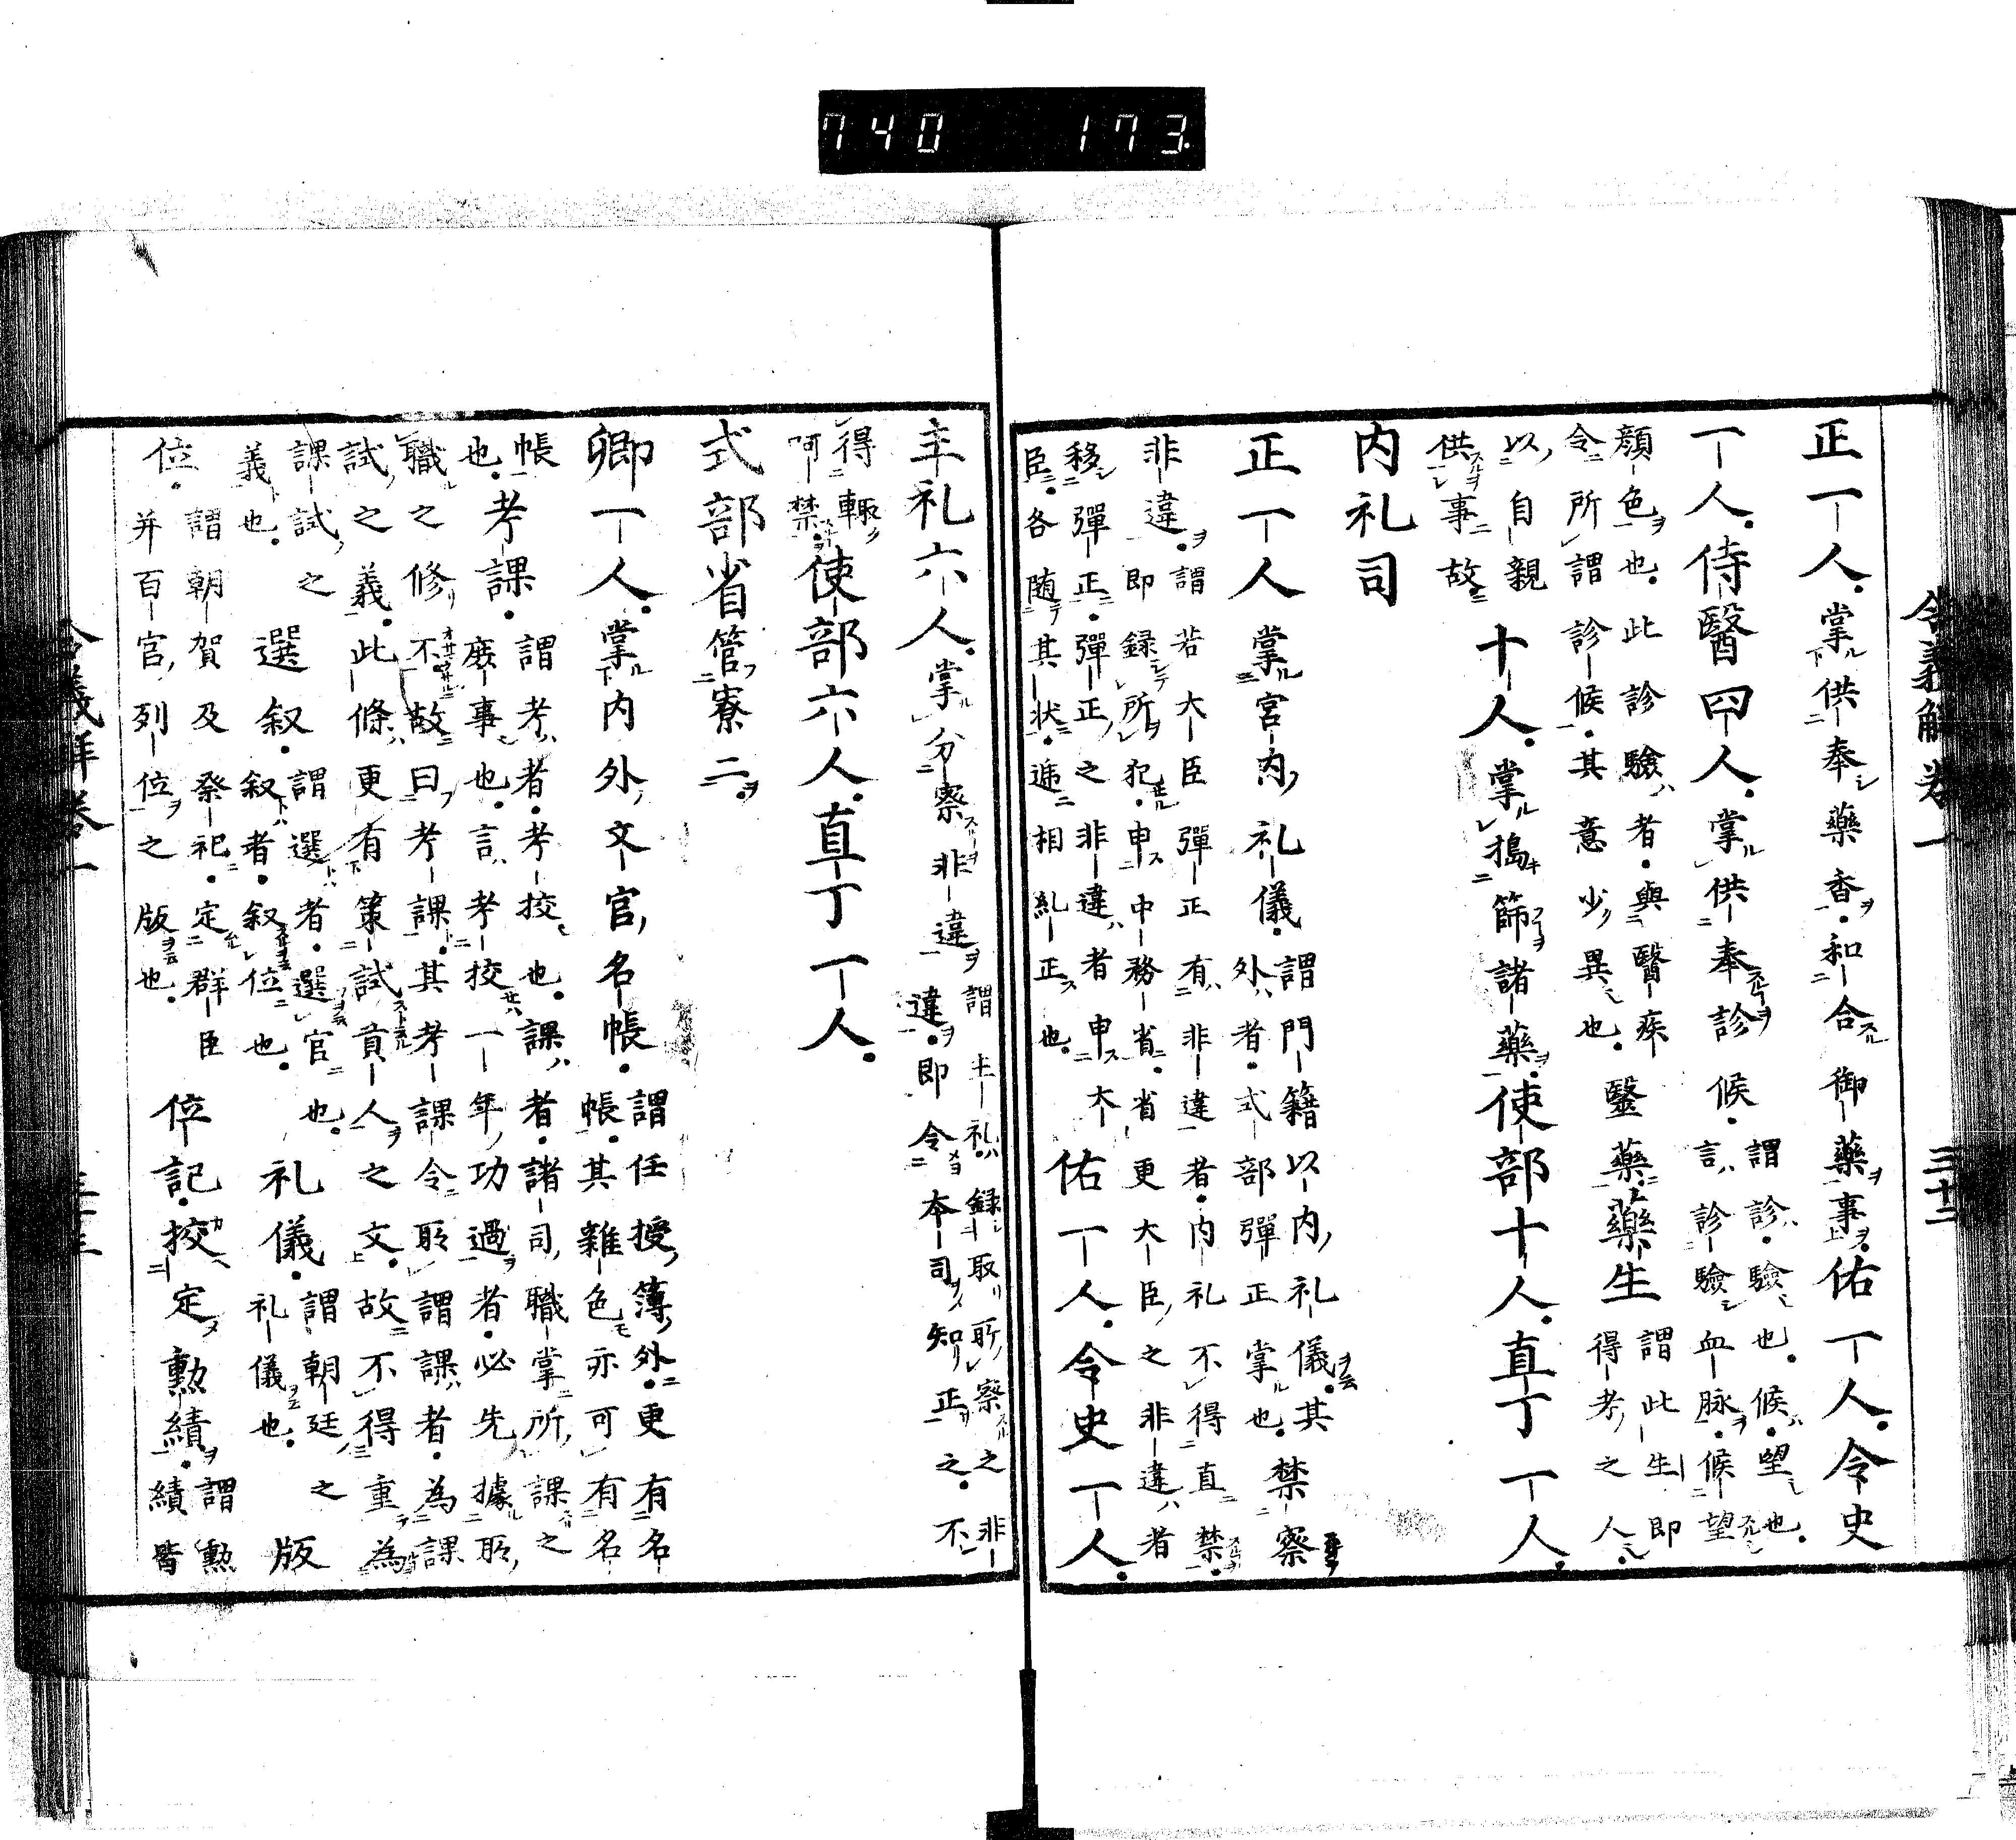 740 173
令義解巻一 三十二
正一人。掌供奉藥香。和合御藥事。佑一人。令史
一人。侍醫四人。掌供奉診候。謂診。驗也。候。望也。
言。診驗血脉。候望
顔色也。此診驗者。與醫疾
令所謂診候。其意少異也。醫藥藥生
謂此生即
得考之人
以自親
供事故
十人。掌搗篩諸藥。使部十人。直丁一人。
内礼司
正一人掌宮内礼儀。謂門籍以内礼儀。其
外者。式部彈正掌也。禁察
非違。謂若大臣彈正有非違者。内礼不得直禁。
即録所犯。申中務省。省更
移彈正。彈正之非違者申大
大臣之非違者
臣。各随其状。遞相糺正也。佑一人。令史一人。
主礼六人。掌分察非違謂主礼録取所察之非
違。即令本司知正之。不
得輙
呵禁。使部六人。直丁一人。
式部省管寮二。
卿一人。掌内外文官名帳。謂任授簿外。更有名
帳。其雜色亦可有名
帳
也。考課。謂考者。考挍也。課者。諸司職掌所課之
庶事也。言考挍一年功過者。必先據所
職之修不。故曰考課。其考課令所謂課者。為課
試之義。此條更有策試貢人之文。故不得重為
課試之
義也。選叙。謂選者。選官也。
叙者。叙位也。礼儀。謂朝廷之
礼儀也。版
位。謂朝賀及祭祀。定群臣
并百官列位之版也。位記。挍定勲績。謂勲
績皆